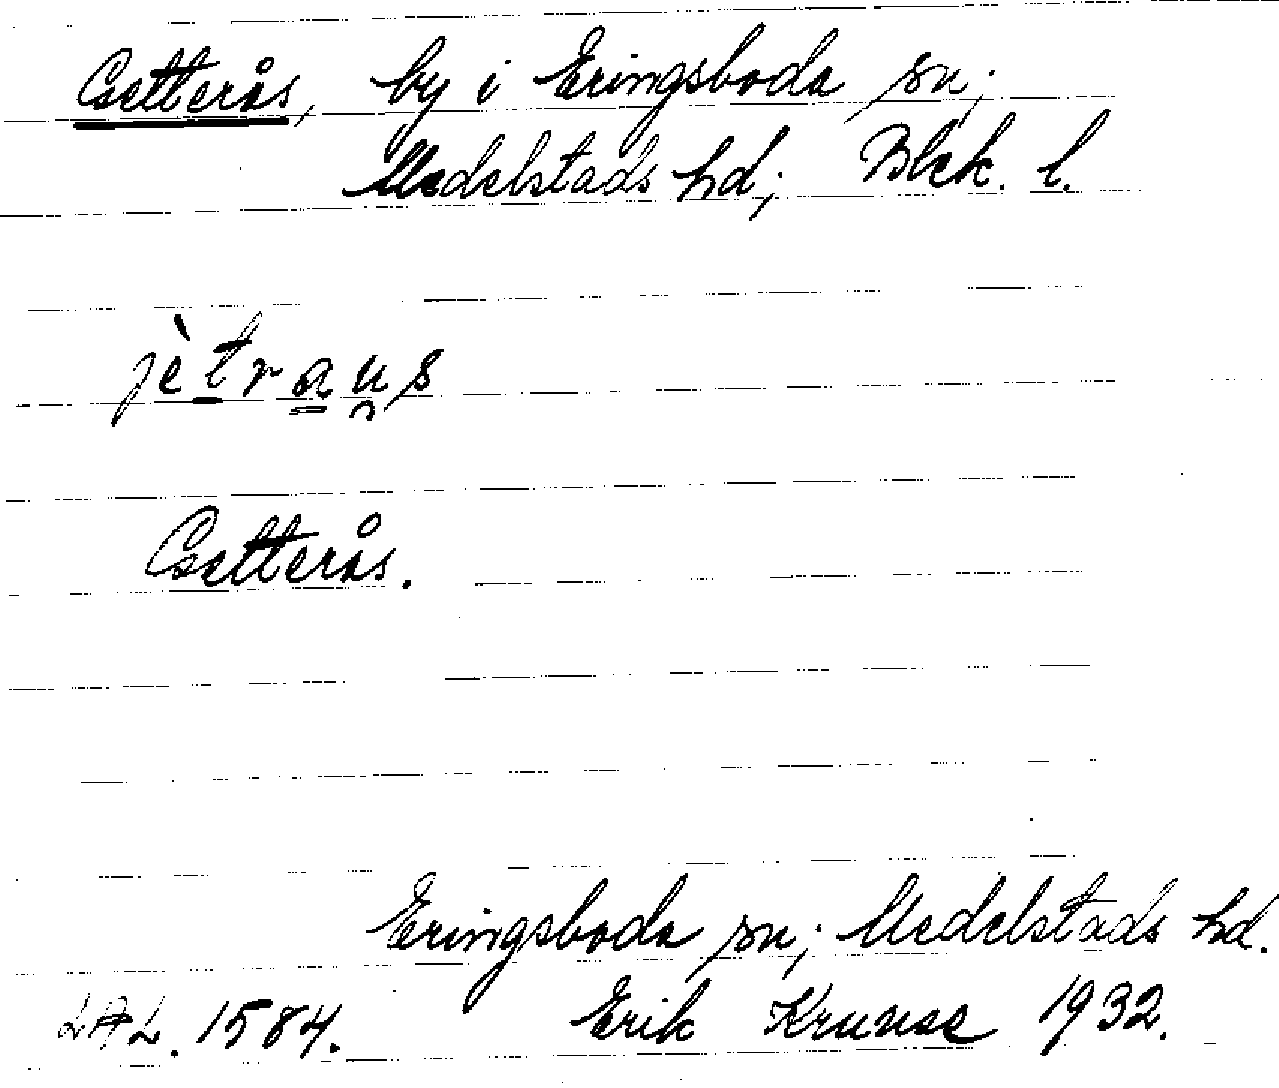 Getterås, by i Eringsboda sn;
Medelstads hd; Blek. l.
jètraus
Getterås.
Eringsboda sn; Medelstads hd.
LAL. 1584. Erik Kruuse 1932.